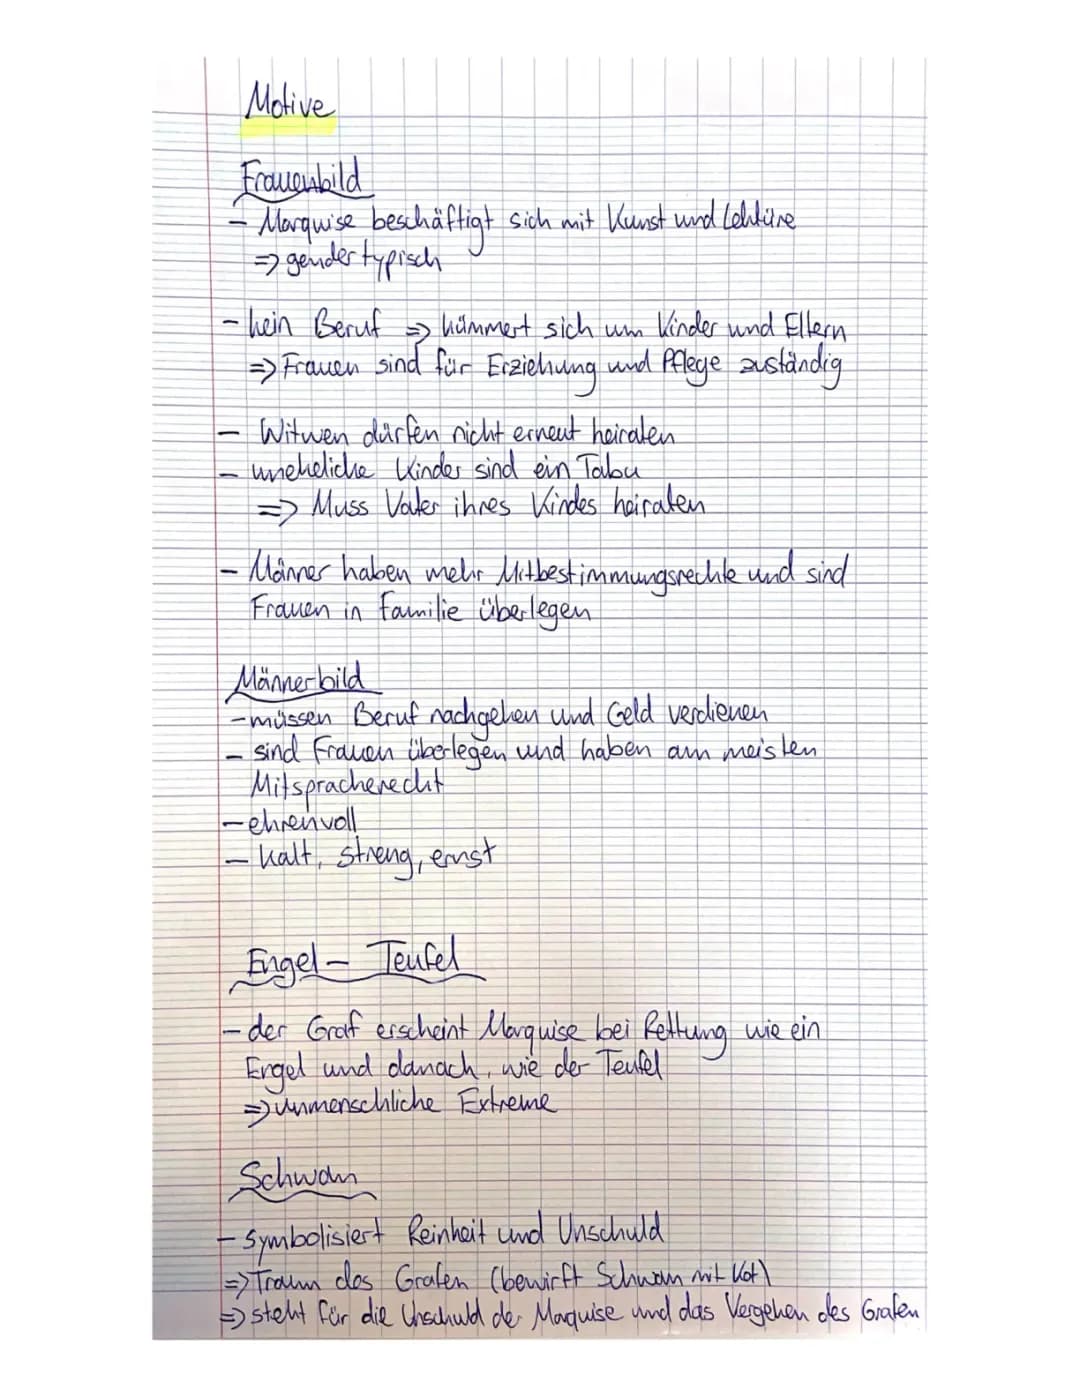 Motive
Frauenbild
- Marquise beschäftigt sich mit Kunst und Lektüre
=> gendertypisch
- kein Beruf => kümmert sich um Kinder und Eltern
=> Frauen sind für Erziehung und Pflege zuständig
- Witwen dürfen nicht erneut heiraten
- uneheliche Kinder sind ein Tabu
=> Muss Vater ihres Kindes heiraten
- Männer haben mehr Mitbestimmungsrechte und sind
Frauen in Familie überlegen
Männerbild
- müssen Beruf nachgehen und Geld verdienen
- sind Frauen überlegen und haben am meisten
Mitspracherecht
- ehrenvoll
- kalt, streng, ernst
Engel - Teufel
- der Graf erscheint Marquise bei Rettung wie ein
Engel und danach, wie der Teufel
=> unmenschliche Extreme
Schwan
- symbolisiert Reinheit und Unschuld
=> Traum des Grafen (bewirft Schwan mit Kot)
=> steht für die Unschuld der Maquise und das Vergehen des Grafen